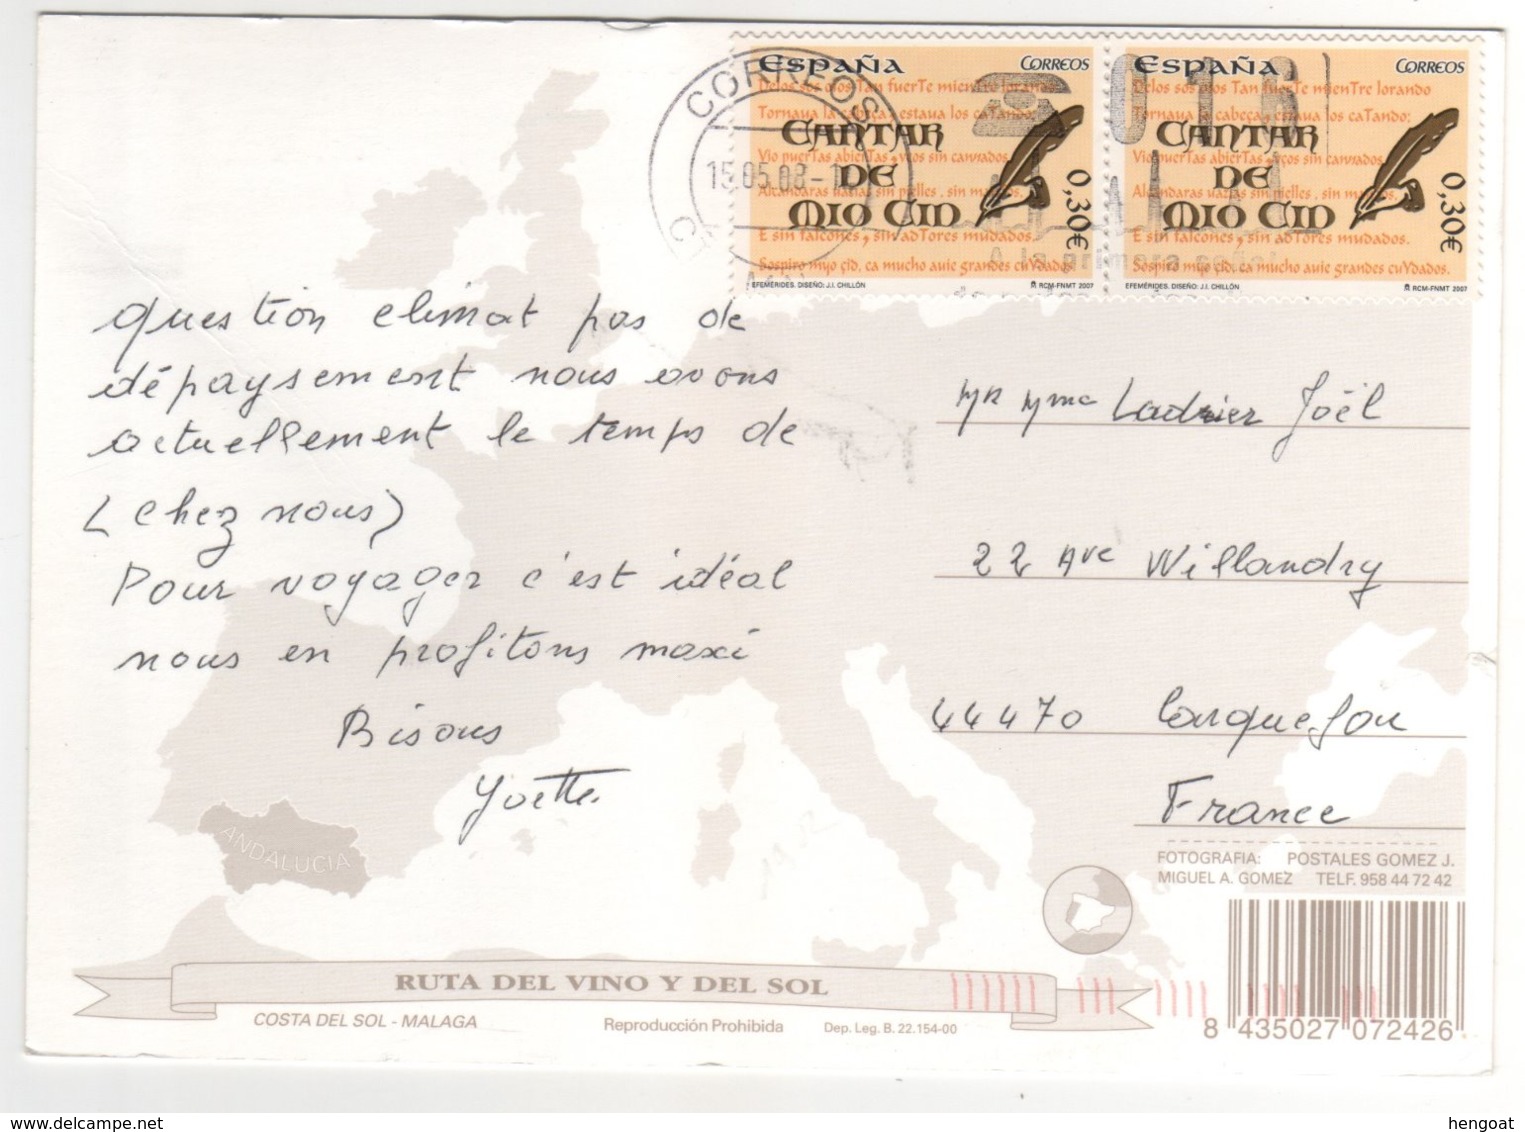 ESPAÑA CORREOS
Delos sos oios Tan fuerTe mienTre lorando
Tornaua la cabeça, estaua los caTando;
CANTAR
Vio puerTas abierTas, vços sin cannados,
DE
Alcandaras uazias, sin pielles, sin mantos,
MIO CID
E sin falcones, sin adTores mudados.
Sospiro myo çid, ca mucho auie grandes cuYdados.
0,30€
EFEMÉRIDES. DISEÑO: J.I. CHILLÓN RCM-FNMT 2007
ESPAÑA CORREOS
Delos sos oios Tan fuerTe mienTre lorando
Tornaua la cabeça, estaua los caTando;
CANTAR
Vio puerTas abierTas, vços sin cannados,
DE
Alcandaras uazias, sin pielles, sin mantos,
MIO CID
E sin falcones, sin adTores mudados.
Sospiro myo çid, ca mucho auie grandes cuYdados.
0,30€
EFEMÉRIDES. DISEÑO: J.I. CHILLÓN RCM-FNMT 2007
CORREOS
15.05.08
016
A la primera señal
question climat pas de
dépaysement nous avons
actuellement le temps de
(chez nous)
Pour voyager c'est idéal
nous en profitons maxi
Bisous
Yvette
Mr Mme Ladrier Joël
22 Ave Willandry
44470 Carquefou
France
ANDALUCIA
FOTOGRAFIA: POSTALES GOMEZ J.
MIGUEL A. GOMEZ TELF. 958 44 72 42
RUTA DEL VINO Y DEL SOL
COSTA DEL SOL - MALAGA Reproducción Prohibida Dep. Leg. B. 22.154-00
8 435027 072426
hengoat